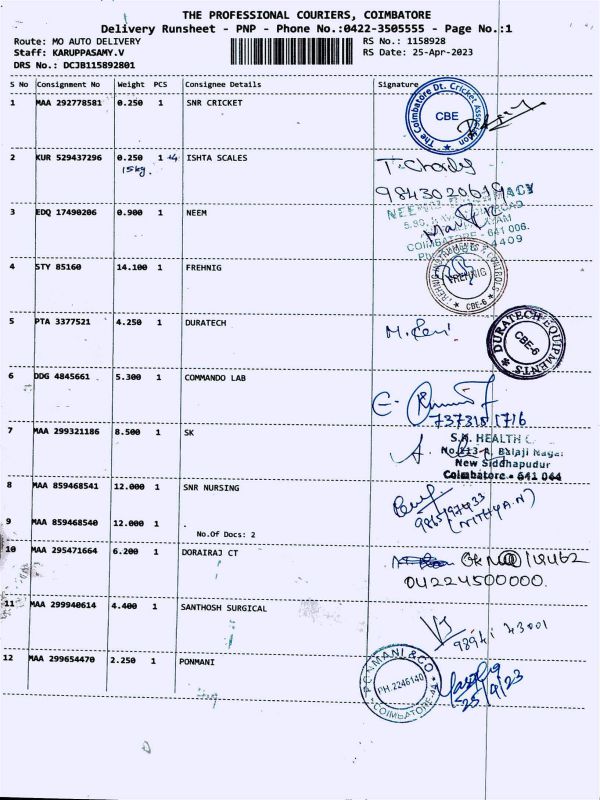 THE PROFESSIONAL COURIERS, COIMBATORE
Delivery Runsheet - PNP - Phone No.:0422-3505555 - Page No.:1
Route: MO AUTO DELIVERY RS No.: 1158928
Staff: KARUPPASAMY.V RS Date: 25-Apr-2023
DRS No.: DCJB115892801
S No Consignment No Weight PCS Consignee Details Signature
1 MAA 292778581 0.250 1 SNR CRICKET
The Coimbatore Dt. Cricket Association
CBE
2 KUR 529437296 0.250 1 +4 ISHTA SCALES
15kg.
9843020619
3 EDQ 17490206 0.900 1 NEEM
COIMBATORE - 641 006.
4 STY 85160 14.100 1 FREHNIG
FREHNIG INSTRUMENTS & CONTROLS
FREHNIG
CBE-6
5 PTA 3377521 4.250 1 DURATECH
DURATECH EQUIPMENTS
CBE-6
6 DDG 4845661 5.300 1 COMMANDO LAB
7373181716
7 MAA 299321186 8.500 1 SK
S.K. HEALTH
Balaji Nagar
New Siddhapudur
Coimbatore - 641 044
8 MAA 859468541 12.000 1 SNR NURSING
(NITHYA.N)
9 MAA 859468540 12.000 1
No.Of Docs: 2
10 MAA 295471664 6.200 1 DORAIRAJ CT
04224500000.
11 MAA 299940614 4.400 1 SANTHOSH SURGICAL
98941 43001
12 MAA 299654470 2.250 1 PONMANI
PONMANI & CO
PH.2246140
COIMBATORE-44
25/4/23